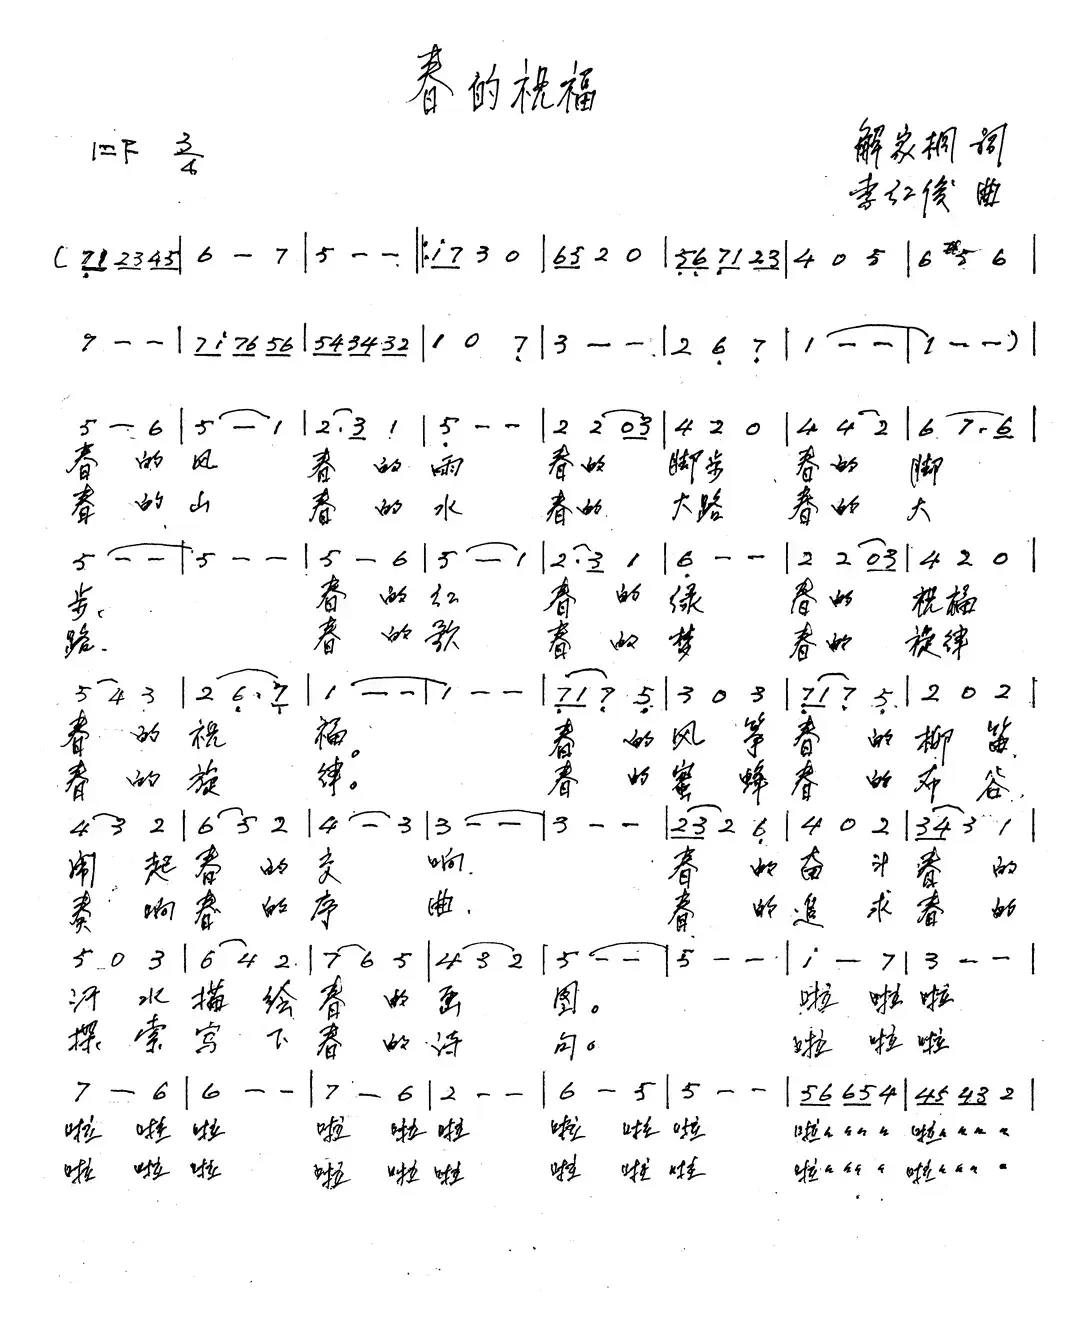 春的祝福
1=F 3/4
解家桐 词
李红俊 曲
( 71 2345 | 6 - 7 | 5 - - |: i7 3 0 | 65 2 0 | 56 71 23 | 4 0 5 | 6 5 6 |
7 - - | 7i 76 56 | 54 34 32 | 1 0 7 | 3 - - | 2 6 7 | 1 - - | 1 - - ) |
5 - 6 | 5 - 1 | 2·3 1 | 5 - - | 2 2 03 | 4 2 0 | 4 4 2 | 6 7·6 |
春 的 风 春 的 雨 春的 脚步 春的 脚
春 的 山 春 的 水 春的 大路 春的 大
5 - - | 5 - - | 5 - 6 | 5 - 1 | 2·3 1 | 6 - - | 2 2 03 | 4 2 0 |
步、 春 的 红 春 的 绿 春的 祝福
路. 春 的 歌 春 的 梦 春的 旋律
5 4 3 | 2 6·7 | 1 - - | 1 - - | 717 5 | 3 0 3 | 717 5 | 2 0 2 |
春 的 祝 福。 春 的 风 筝 春 的 柳 笛.
春 的 旋 律。 春 的 蜜 蜂 春 的 布 谷.
4 3 2 | 6 5 2 | 4 - 3 | 3 - - | 3 - - | 23 2 6 | 4 0 2 | 34 3 1 |
闹 起 春 的 交 响. 春 的 奋 斗 春 的
奏 响 春 的 序 曲. 春 的 追 求 春 的
5 0 3 | 6 4 2 | 7 6 5 | 4 3 2 | 5 - - | 5 - - | i - 7 | 3 - - |
汗 水 描 绘 春 的 画 图。 啦 啦 啦
探 索 写 下 春 的 诗 句。 啦 啦 啦
7 - 6 | 6 - - | 7 - 6 | 2 - - | 6 - 5 | 5 - - | 56 65 4 | 45 43 2 |
啦 啦 啦 啦 啦 啦 啦 啦 啦 啦〃〃〃〃 啦〃〃〃〃
啦 啦 啦 啦 啦 啦 啦 啦 啦 啦〃〃〃〃 啦〃〃〃〃